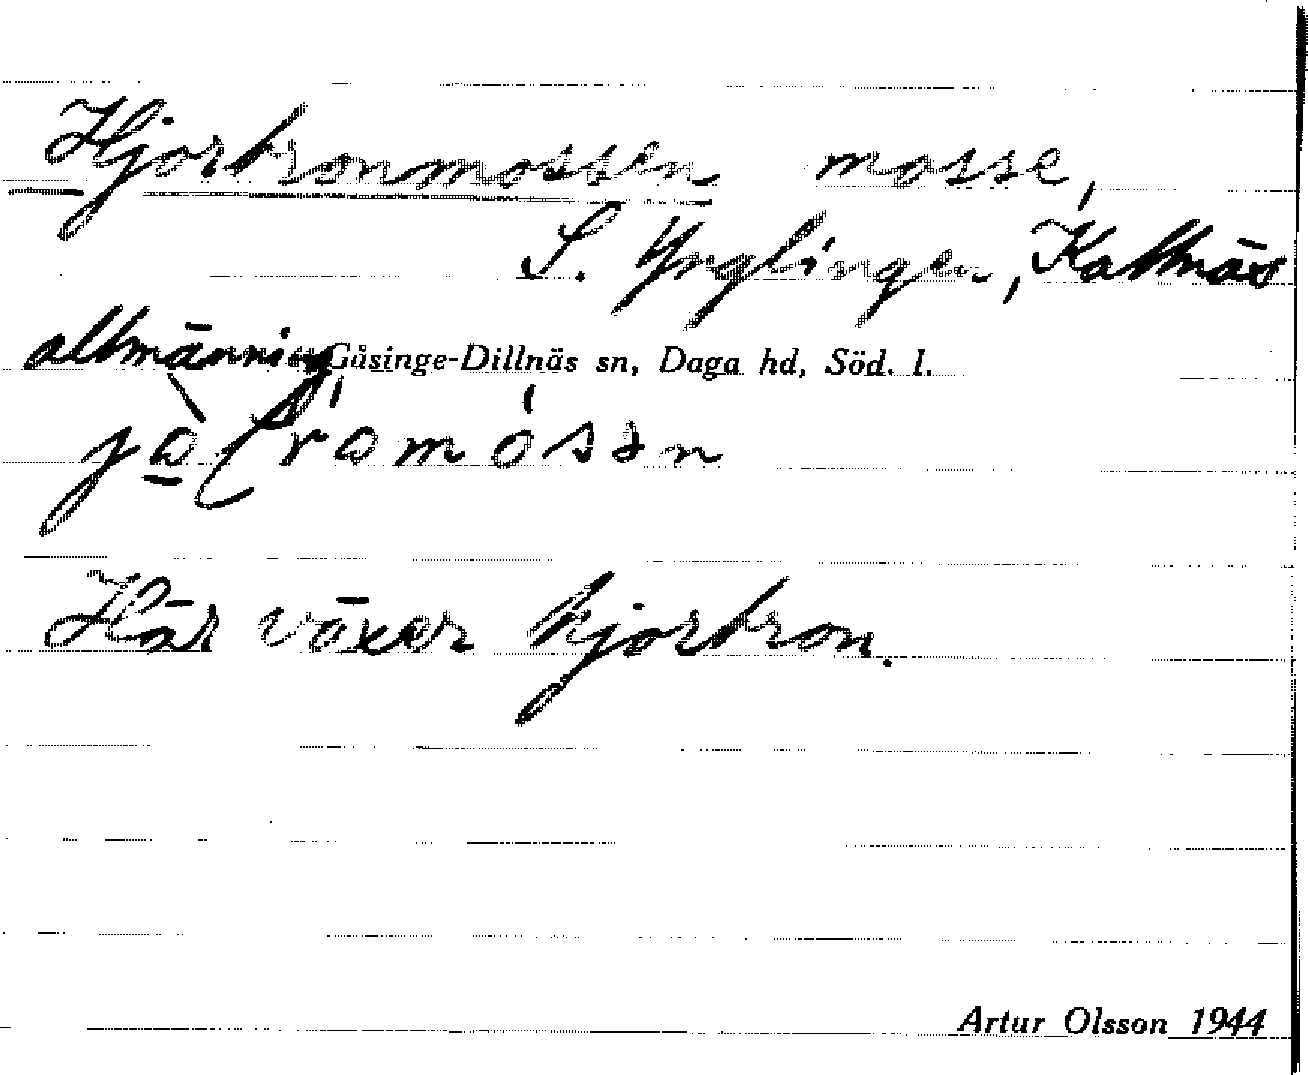 Hjortronmossen mosse,
S. Ynglingen, Kattnäs
allmänning Gåsinge-Dillnäs sn, Daga hd, Söd. l.
Här växer hjortron.
Artur Olsson 1944